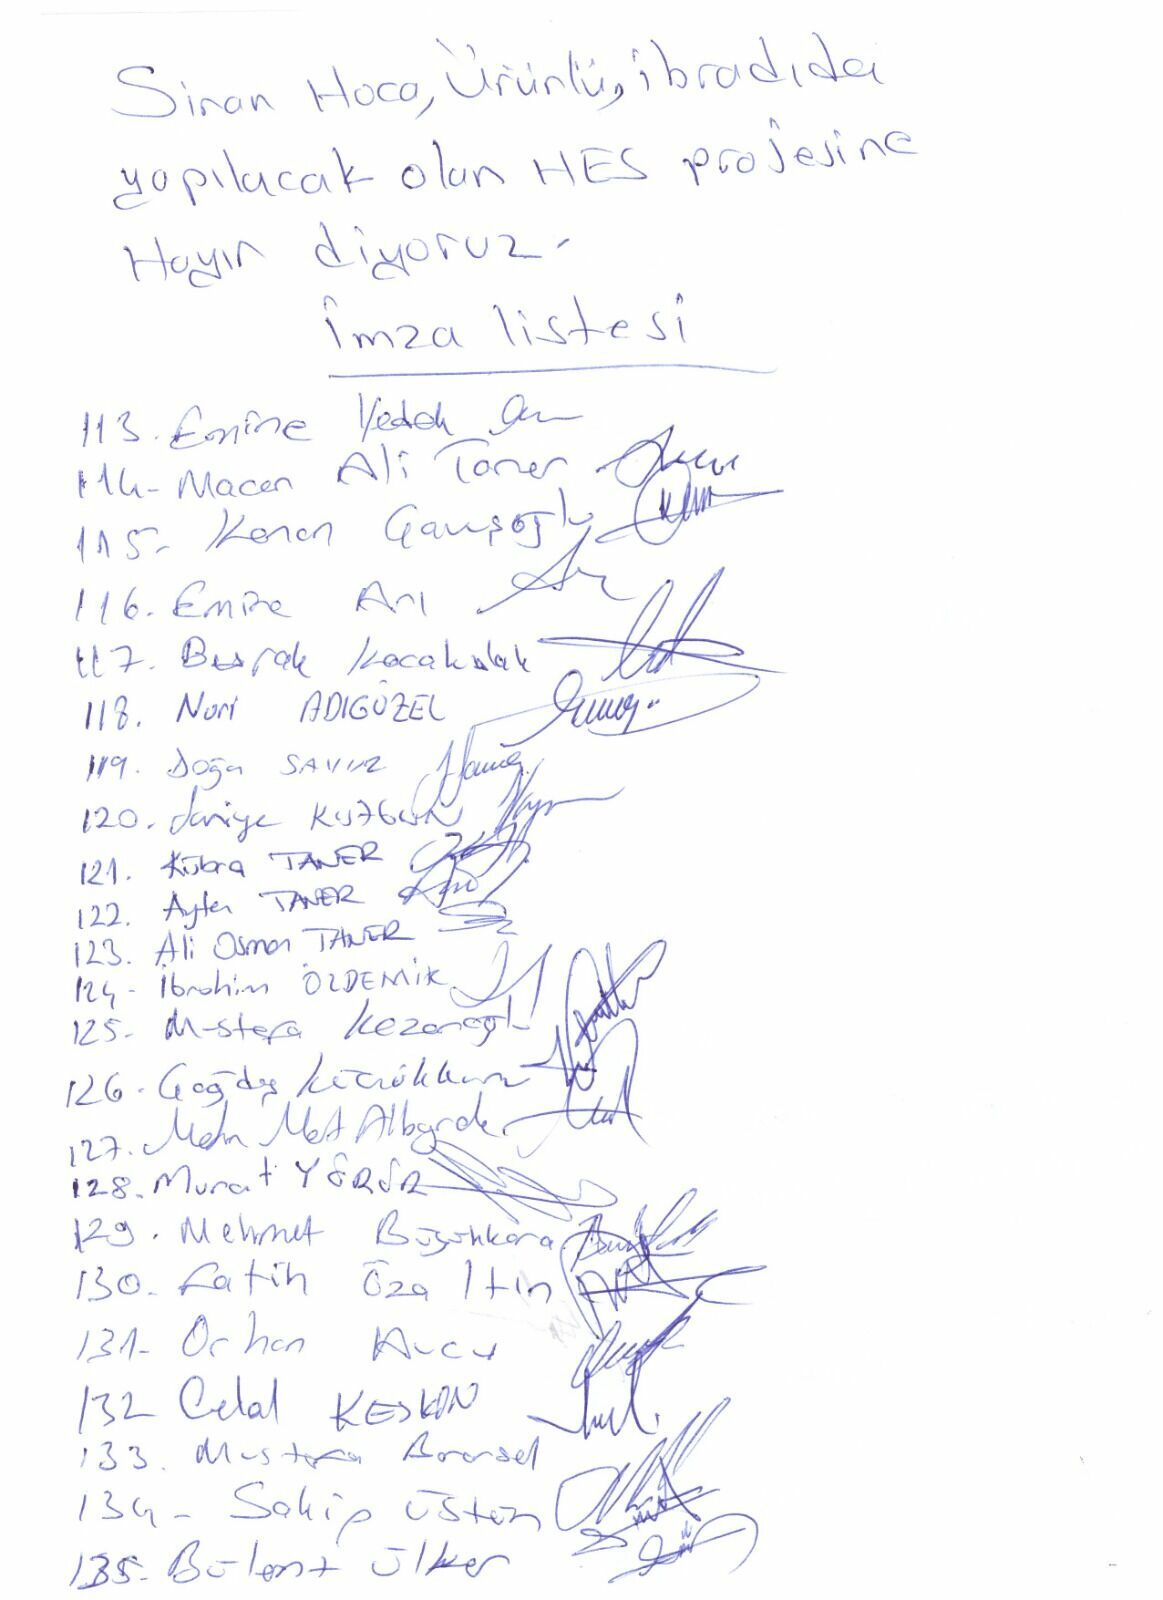 Sinan Hoca, Ürünlü, ibradıda
yapılacak olan HES projesine
Hayır diyoruz.
İmza listesi
113. Emine Yedek
114- Macen Ali Taner
115- Kenan Çavuşoğlu
116. Emine Arı
117. Burak Kocakulak
118. Nuri ADIGÜZEL
119. Doğa
120. Saniye KUZGUN
121. Kübra TANER
122. Ayten TANER
123. Ali Osman TANER
124- İbrahim ÖZDEMİR
125- Mustafa Kezanoğlu
126- Çağdaş
127. Albayrak
128. Murat YÖRÜR
129. Mehmet Büyükkara
130. Fatih Özaltın
131- Orhan Avcu
132 Celal KESKİN
133. Mustafa
134- Sakip üstün
135- Bülent ülker